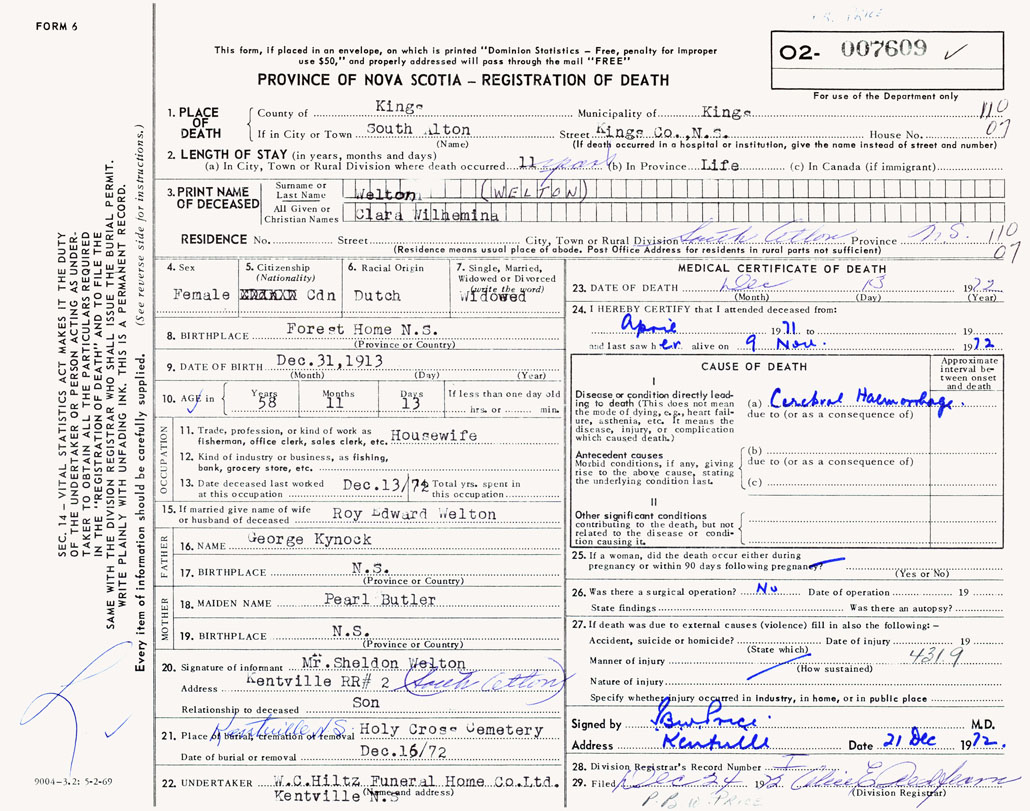 FORM 6
This form, if placed in an envelope, on which is printed "Dominion Statistics – Free, penalty for improper
use $50," and properly addressed will pass through the mail "FREE"
PROVINCE OF NOVA SCOTIA – REGISTRATION OF DEATH
O2- 007609 ✓
For use of the Department only
1. PLACE OF DEATH
County of Kings Municipality of Kings 110
If in City or Town South Alton Street Kings Co.,N.S. House No. 07
(Name) (If death occurred in a hospital or institution, give the name instead of street and number)
2. LENGTH OF STAY (in years, months and days)
(a) In City, Town or Rural Division where death occurred 11 years (b) In Province Life (c) In Canada (if immigrant)
3. PRINT NAME OF DECEASED
Surname or Last Name Welton (WELTON)
All Given or Christian Names Clara Wilhemina
RESIDENCE No. Street City, Town or Rural Division South Alton Province N.S. 110
(Residence means usual place of abode. Post Office Address for residents in rural parts not sufficient) 07
4. Sex Female
5. Citizenship (Nationality) Cdn
6. Racial Origin Dutch
7. Single, Married, Widowed or Divorced (write the word) Widowed
8. BIRTHPLACE Forest Home N.S.
(Province or Country)
9. DATE OF BIRTH Dec.31,1913
(Month) (Day) (Year)
10. AGE in Years 58 Months 11 Days 13 If less than one day old hrs. or min.
OCCUPATION
11. Trade, profession, or kind of work as fisherman, office clerk, sales clerk, etc. Housewife
12. Kind of industry or business, as fishing, bank, grocery store, etc.
13. Date deceased last worked at this occupation Dec.13/72 Total yrs. spent in this occupation
15. If married give name of wife or husband of deceased Roy Edward Welton
FATHER
16. NAME George Kynock
17. BIRTHPLACE N.S.
(Province or Country)
MOTHER
18. MAIDEN NAME Pearl Butler
19. BIRTHPLACE N.S.
(Province or Country)
20. Signature of informant Mr.Sheldon Welton
Address Kentville RR# 2 (South Alton)
Relationship to deceased Son
21. Place of burial, cremation or removal Kentville N.S. Holy Cross Cemetery
Date of burial or removal Dec.16/72
22. UNDERTAKER W.C.Hiltz Funeral Home Co.Ltd.
(Name and address)
Kentville N.S
MEDICAL CERTIFICATE OF DEATH
23. DATE OF DEATH Dec 13 1972
(Month) (Day) (Year)
24. I HEREBY CERTIFY that I attended deceased from:
April 1971 to 19
and last saw her alive on 9 Nov. 1972
CAUSE OF DEATH
Approximate interval between onset and death
I
Disease or condition directly leading to death (This does not mean the mode of dying, e.g., heart failure, asthenia, etc. It means the disease, injury, or complication which caused death.)
(a) Cerebral Haemorrhage.
due to (or as a consequence of)
Antecedent causes
Morbid conditions, if any, giving rise to the above cause, stating the underlying condition last.
(b)
due to (or as a consequence of)
(c)
II
Other significant conditions
contributing to the death, but not related to the disease or condition causing it.
25. If a woman, did the death occur either during
pregnancy or within 90 days following pregnancy?
(Yes or No)
26. Was there a surgical operation? No Date of operation 19
State findings Was there an autopsy?
27. If death was due to external causes (violence) fill in also the following: –
Accident, suicide or homicide? Date of injury 19
(State which)
Manner of injury 431.9
(How sustained)
Nature of injury
Specify whether injury occurred in industry, in home, or in public place
Signed by B.W. Price. M.D.
Address Kentville Date 21 Dec 1972.
28. Division Registrar's Record Number
29. Filed Dec 24 1972
(Division Registrar)
SEC. 14 – VITAL STATISTICS ACT MAKES IT THE DUTY
OF THE UNDERTAKER OR PERSON ACTING AS UNDERTAKER
TO OBTAIN ALL THE PARTICULARS REQUIRED
IN THE "REGISTRATION OF DEATH" AND FILE THE
SAME WITH THE DIVISION REGISTRAR WHO SHALL ISSUE THE BURIAL PERMIT.
WRITE PLAINLY WITH UNFADING INK. THIS IS A PERMANENT RECORD.
Every item of information should be carefully supplied. (See reverse side for instructions.)
9004-3.2: 5-2-69